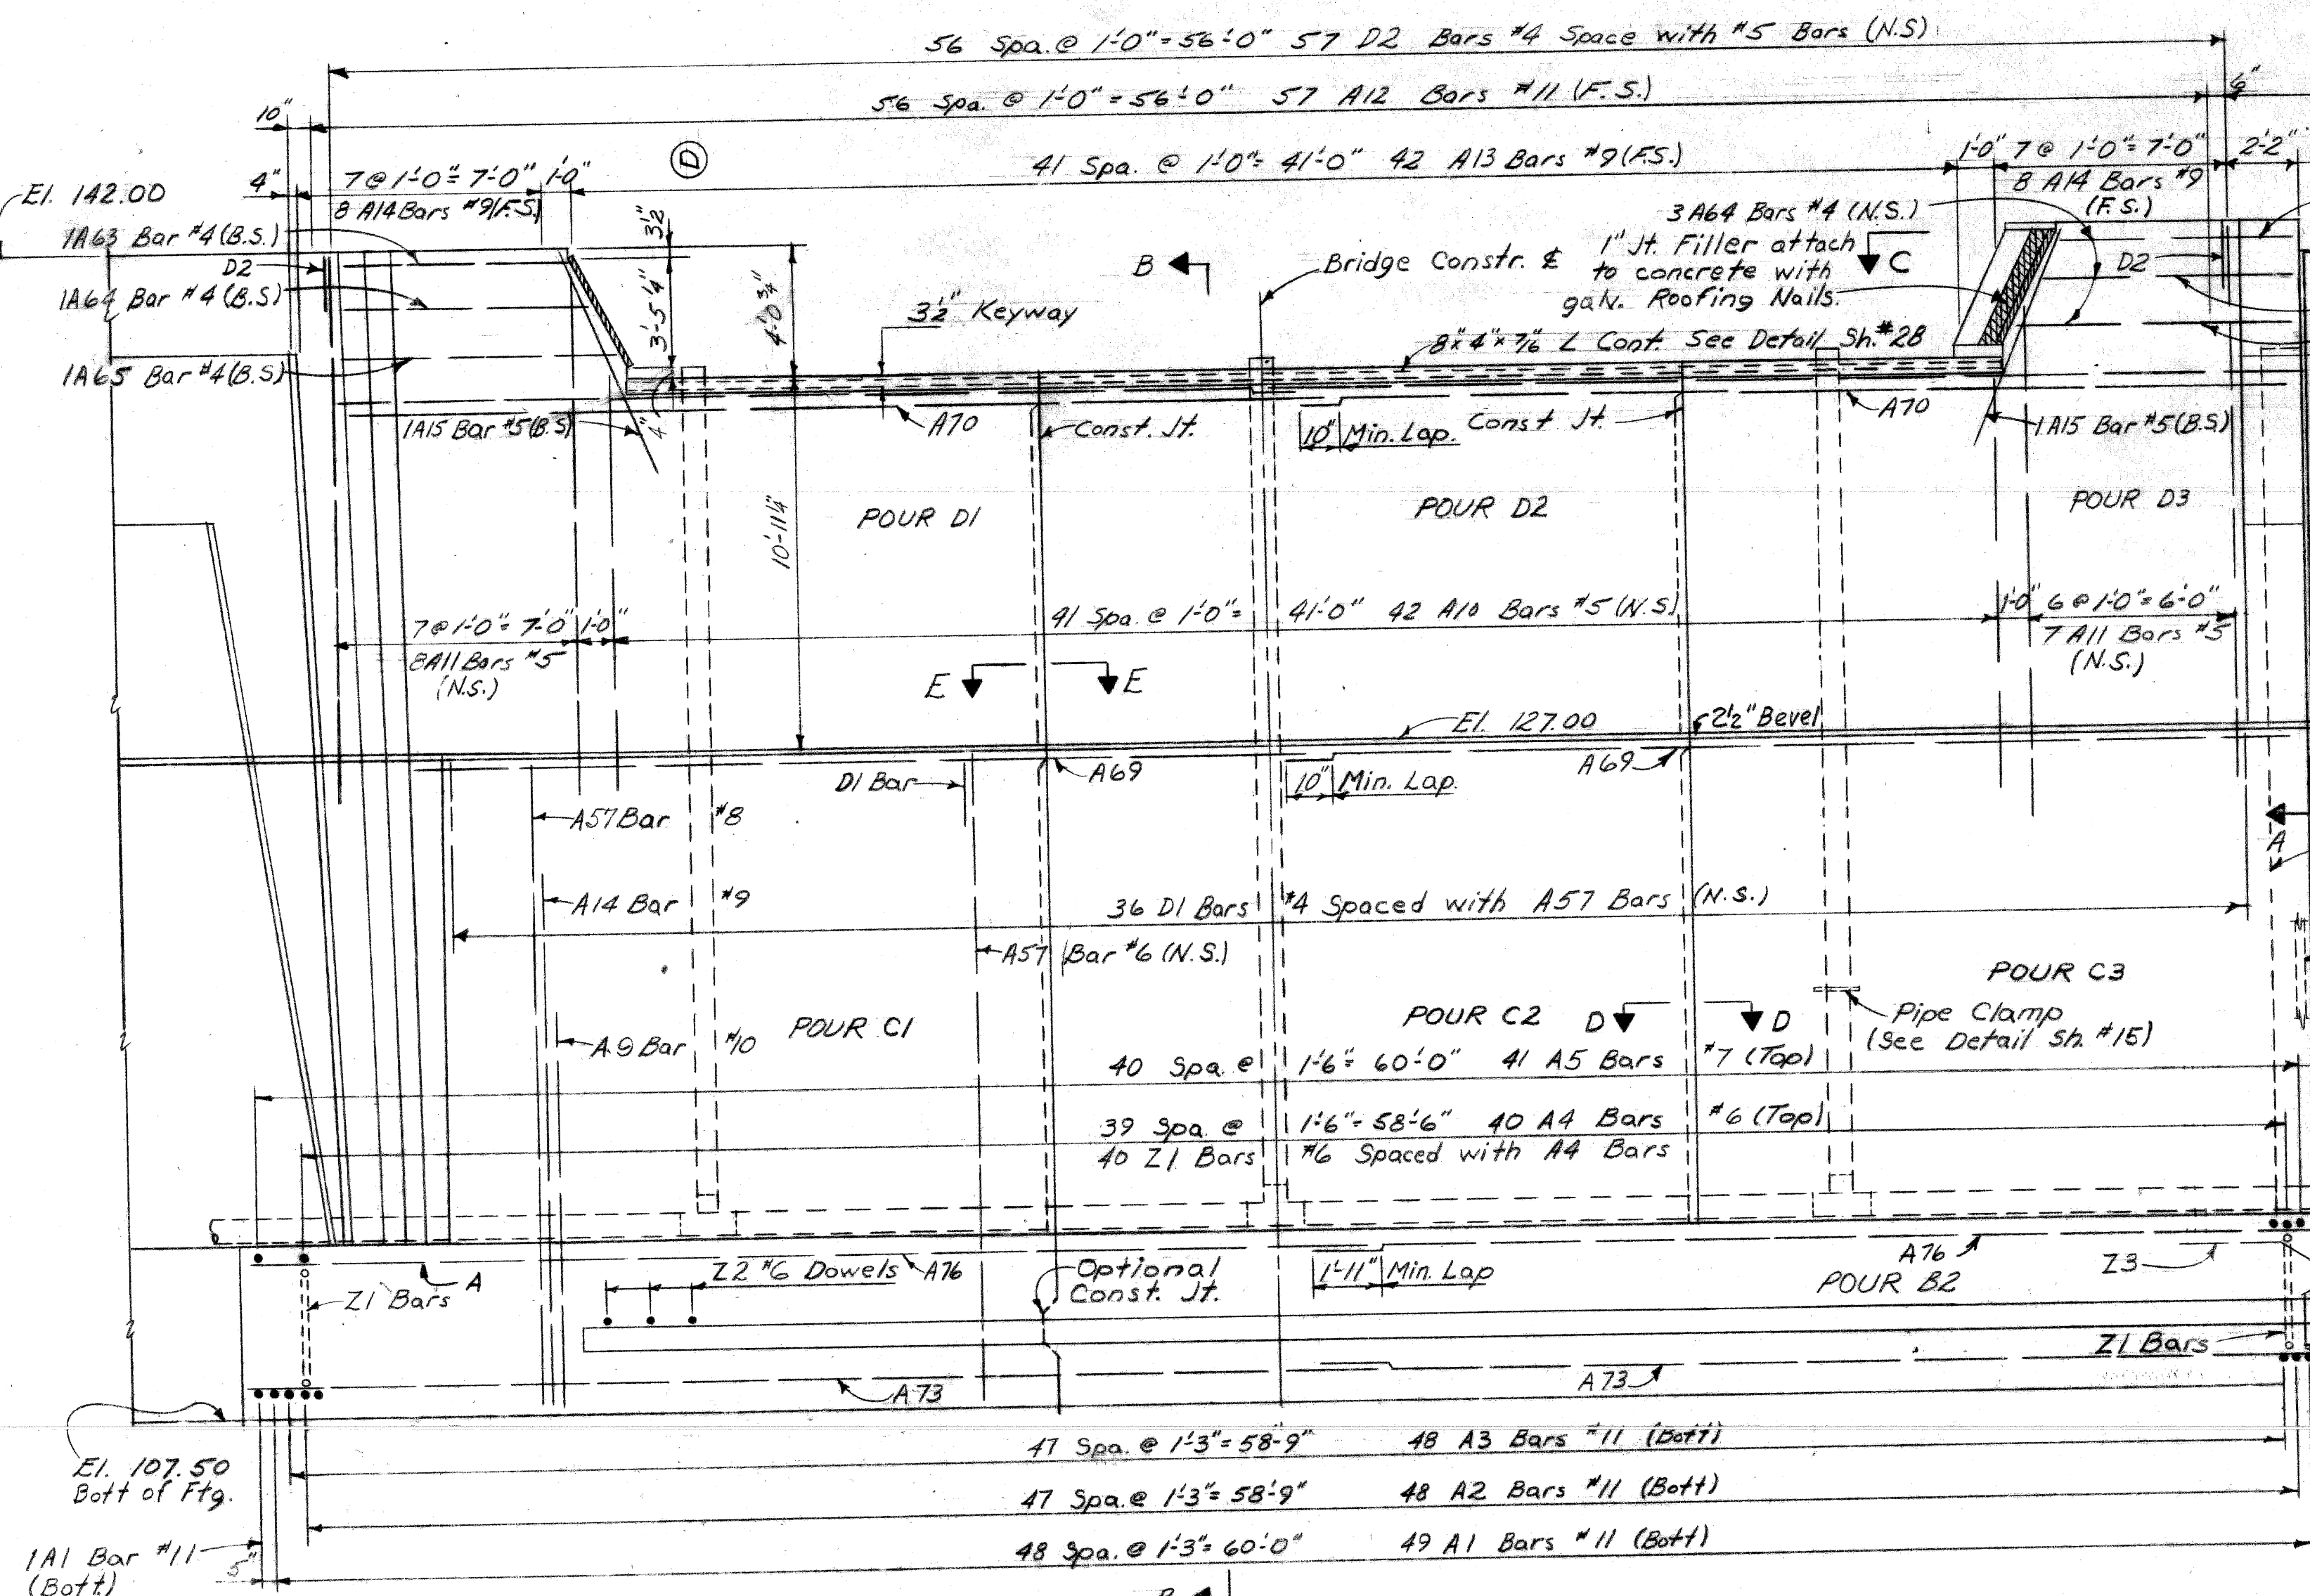 56 Spa. @ 1'-0" = 56'-0" 57 D2 Bars #4 Space with #5 Bars (N.S)
56 Spa. @ 1'-0" = 56'-0" 57 A12 Bars #11 (F.S.)
10"
6"
41 Spa. @ 1'-0" = 41'-0" 42 A13 Bars #9 (F.S.)
D
1'-0" 7 @ 1'-0" = 7'-0" 2'-2"
8 A14 Bars #9
(F.S.)
4" 7 @ 1'-0" = 7'-0" 1'-0"
8 A14 Bars #9 (F.S.)
El. 142.00
1A63 Bar #4 (B.S.)
D2
1A64 Bar #4 (B.S)
1A65 Bar #4 (B.S)
3½"
3'-5¼"
4'-0¾"
4"
3 A64 Bars #4 (N.S.)
1" Jt. Filler attach
to concrete with
galv. Roofing Nails.
B
Bridge Constr. ℄
C
D2
3½" Keyway
8" x 4" x 7/16 L Cont. See Detail Sh. #28
1A15 Bar #5 (B.S)
A70
Const. Jt.
10" Min. Lap.
Const Jt.
A70
1A15 Bar #5 (B.S.)
POUR D1
POUR D2
POUR D3
10'-11¼"
7 @ 1'-0" = 7'-0" 1'-0"
8 A11 Bars #5
(N.S.)
41 Spa. @ 1'-0" = 41'-0" 42 A10 Bars #5 (N.S.)
1'-0" 6 @ 1'-0" = 6'-0"
7 A11 Bars #5
(N.S.)
E E
El. 127.00
2½" Bevel
D1 Bar
A69
10" Min. Lap.
A69
A57 Bar #8
A
A14 Bar #9
36 D1 Bars #4 Spaced with A57 Bars (N.S.)
A57 Bar #6 (N.S.)
POUR C3
POUR C1
POUR C2
D D
Pipe Clamp
(See Detail Sh. #15)
A9 Bar #10
40 Spa. @ 1'-6" = 60'-0" 41 A5 Bars #7 (Top)
39 Spa. @ 1'-6" = 58'-6" 40 A4 Bars #6 (Top)
40 Z1 Bars #6 Spaced with A4 Bars
A
Z1 Bars
Z2 #6 Dowels
A76
Optional
Const. Jt.
1'-11" Min. Lap
A76
POUR B2
Z3
Z1 Bars
A73
A73
El. 107.50
Bott of Ftg.
47 Spa. @ 1'-3" = 58'-9" 48 A3 Bars #11 (Bott)
47 Spa. @ 1'-3" = 58'-9" 48 A2 Bars #11 (Bott)
48 Spa. @ 1'-3" = 60'-0" 49 A1 Bars #11 (Bott)
1A1 Bar #11
(Bott.)
5"